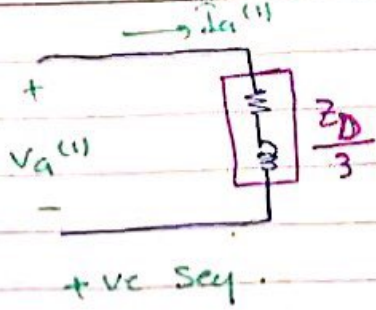 → Ia⁽¹⁾
+
Va⁽¹⁾
Z_D
3
−
+ve Seq.